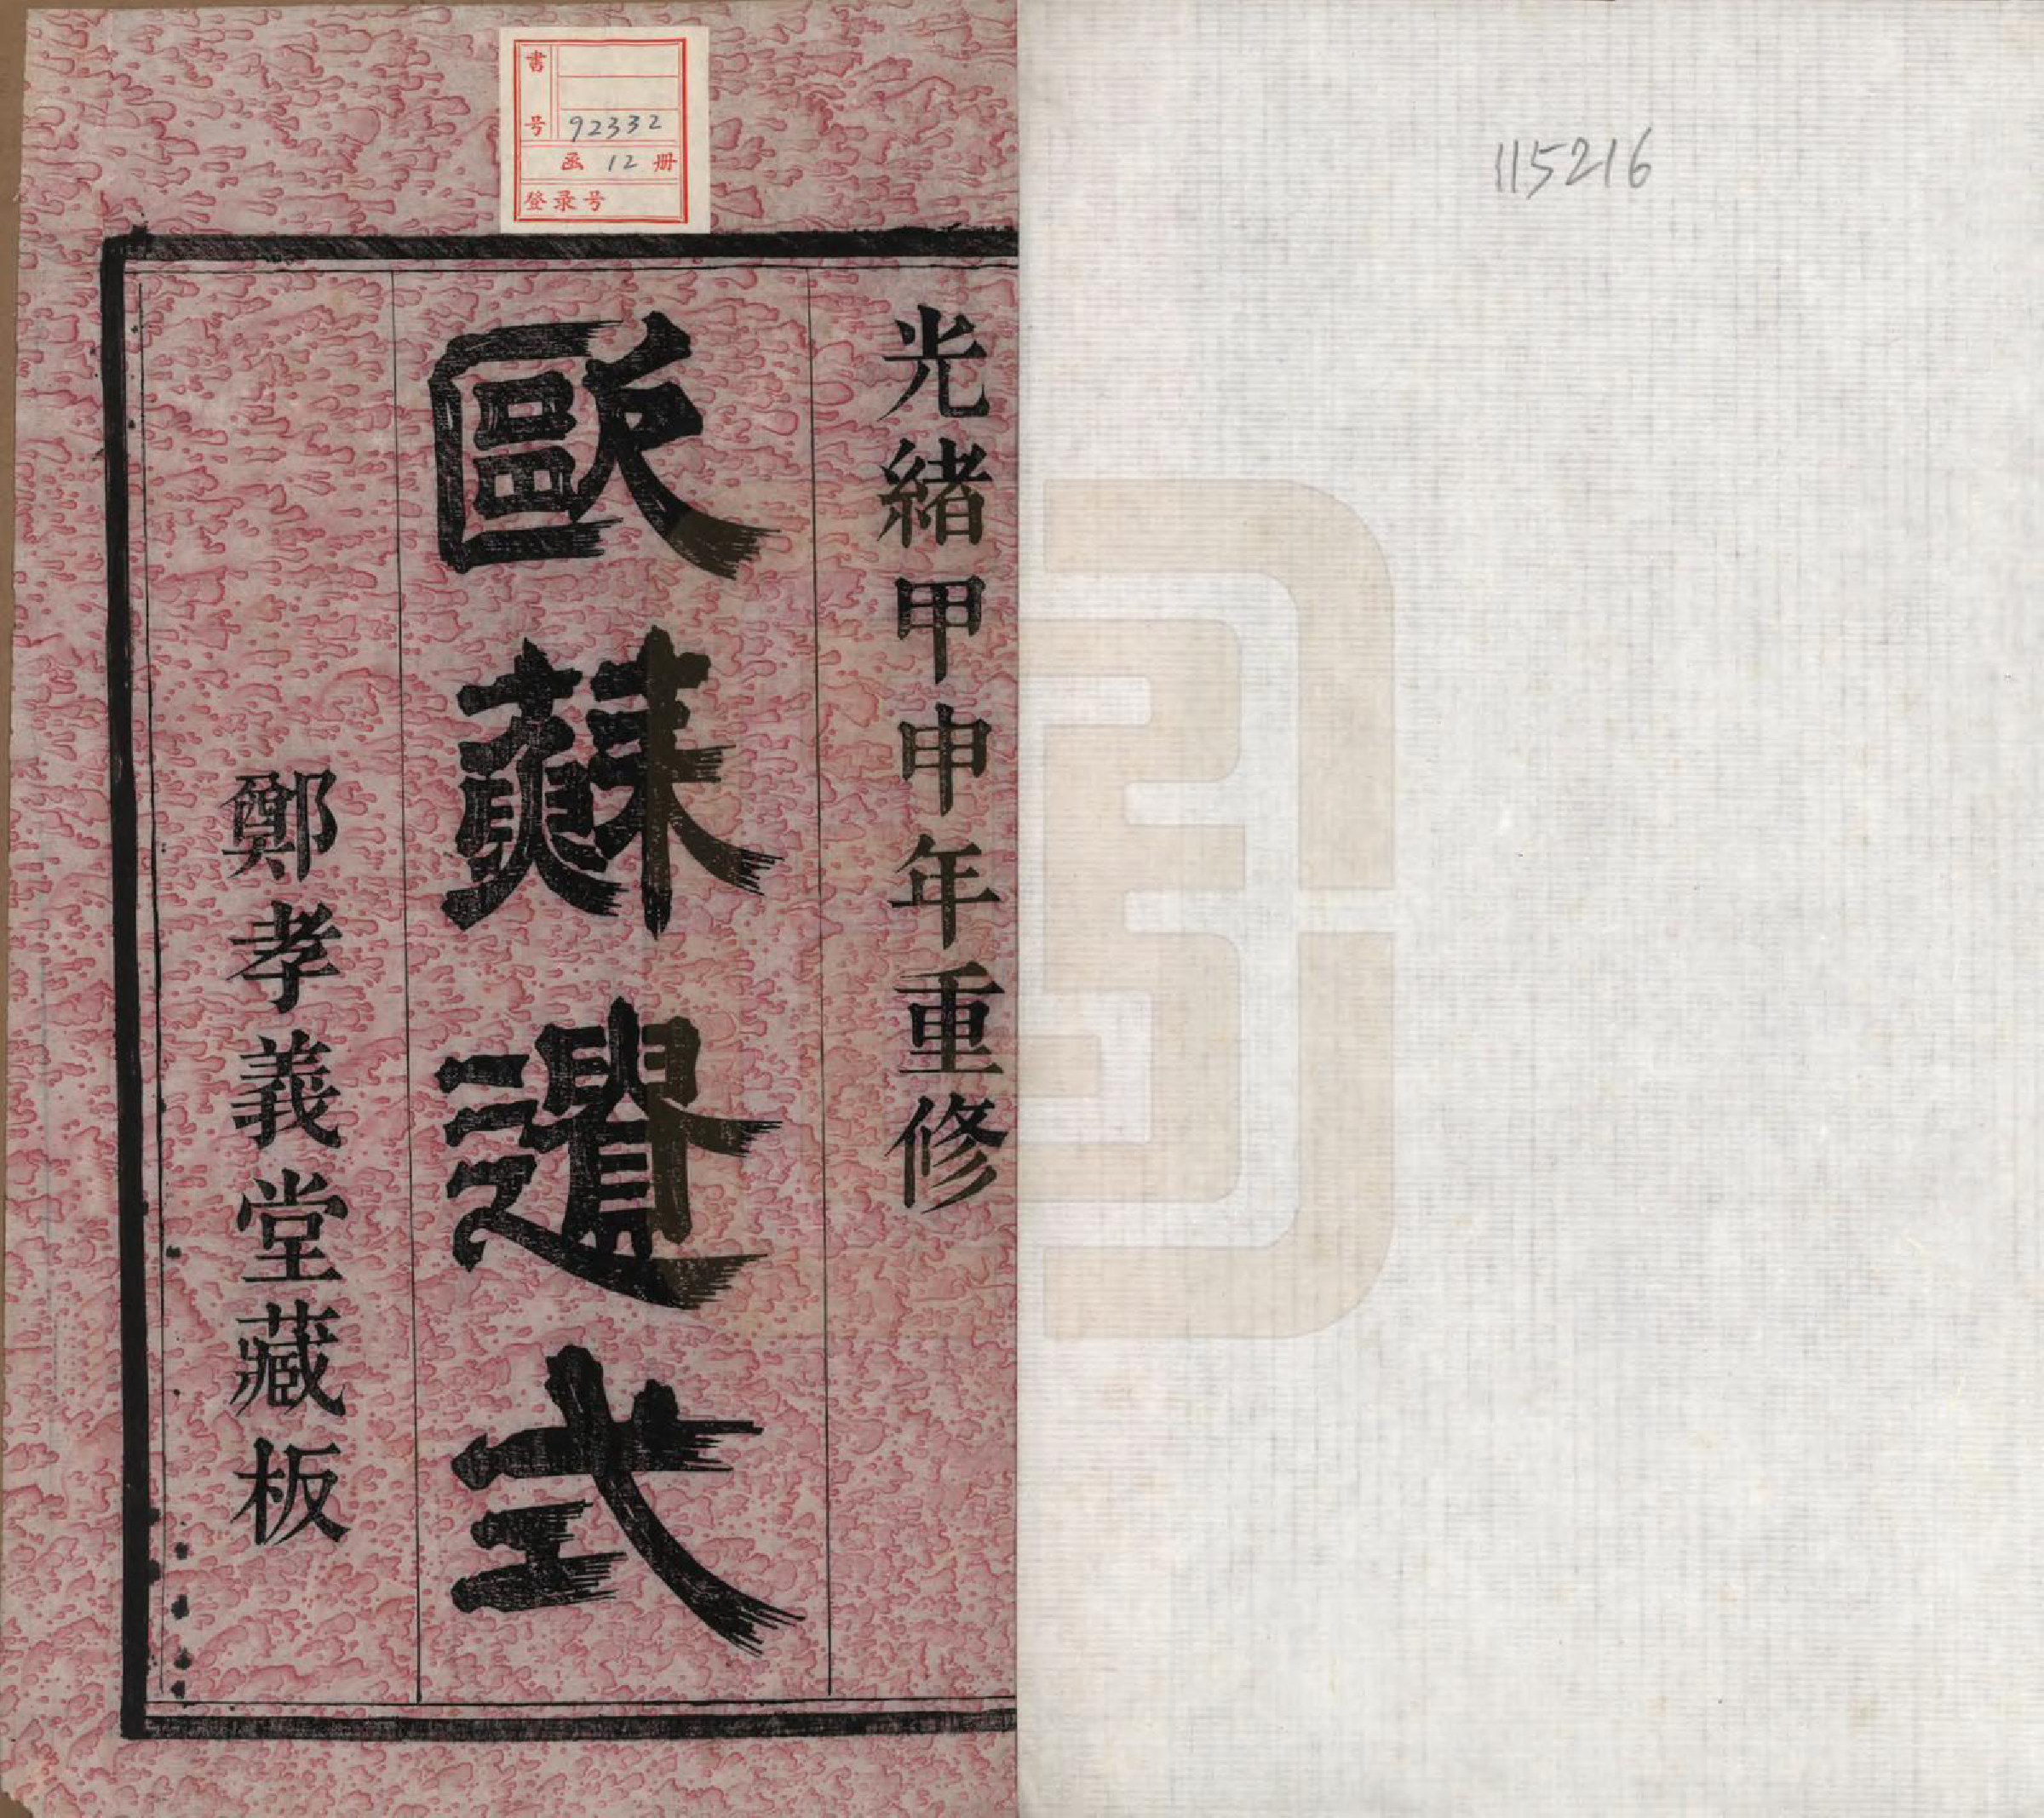 115216
書号 92332
函 12 册
登录号
光緒甲申年重修
歐蘇遺式
鄭孝義堂藏板